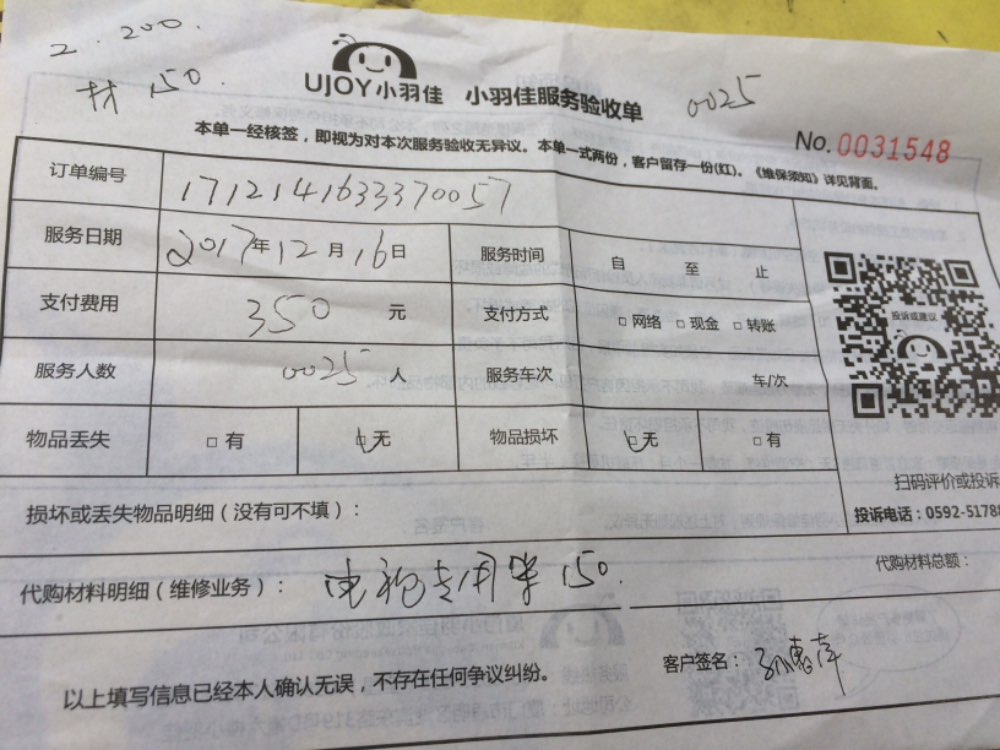 2.200.
材 150.
UJOY小羽佳 小羽佳服务验收单
0025
No. 0031548
本单一经核签，即视为对本次服务验收无异议。本单一式两份，客户留存一份(红)。《维保须知》详见背面。
订单编号 1712141633370057
服务日期 2017年12月16日 服务时间 自 至 止
支付费用 350 元 支付方式 □网络 □现金 □转账
服务人数 0025 人 服务车次 车/次
物品丢失 □有 □无 物品损坏 □无 □有
投诉或建议
扫码评价或投诉
投诉电话：0592-51788
损坏或丢失物品明细（没有可不填）：
代购材料明细（维修业务）： 电视专用架 150.
代购材料总额：
客户签名：
以上填写信息已经本人确认无误，不存在任何争议纠纷。